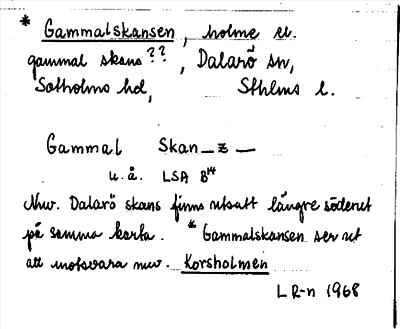 * Gammalskansen, holme el.
gammal skans??, Dalarö sn,
Sotholms hd, Sthlms l.
Gammal Skan — z —
u.å. LSA B14
Nuv. Dalarö skans finns utsatt längre söderut
på samma karta. * Gammalskansen ser ut
att motsvara nuv. Korsholmen
LR-n 1968